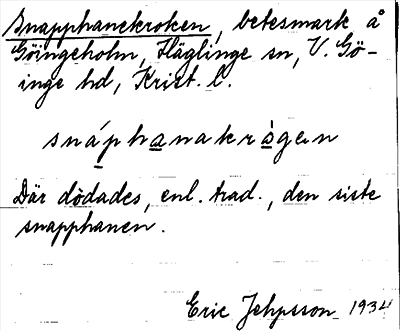 Snapphanekroken, betesmark å
Göingeholm, Häglinge sn, V. Gö-
inge hd, Krist. l.
snáphanakrågen
Där dödades, enl. trad., den siste
snapphanen.
Eric Jepsson 1934